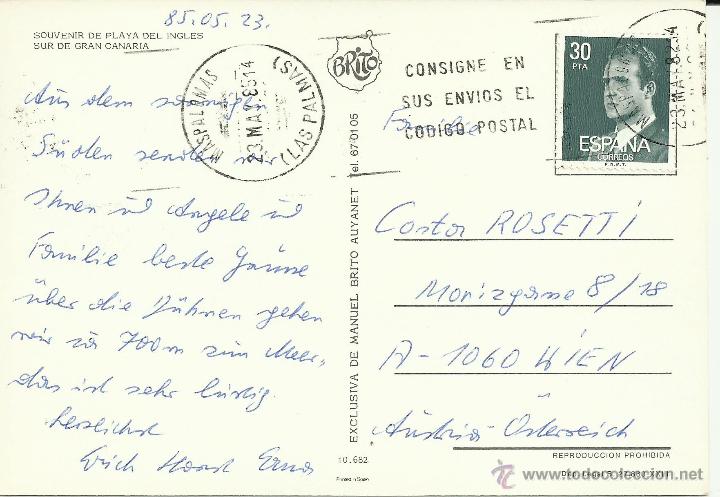 85.05.23.
SOUVENIR DE PLAYA DEL INGLES
SUR DE GRAN CANARIA
MASPALOMAS
23.MAY 85 14
(LAS PALMAS)
BRITO
CONSIGNE EN
SUS ENVIOS EL
CODIGO POSTAL
30
PTA
ESPAÑA
CORREOS
F.N.M.T.
Aus dem sonnigen
Süden senden wir
Ihnen und Angele und
Familie beste Grüsse
über die Dühnen gehen
wir ca 700m zum Meer,
das ist sehr lustig.
herzlichst
Erich Horst
EXCLUSIVA DE MANUEL BRITO AUYANET Tel. 67 01 05
Familie
Costa ROSETTI
Morizgasse 8/18
A-1060 WIEN
Austria-Österreich
10.682
Printed in Spain
REPRODUCCION PROHIBIDA
todocoleccion